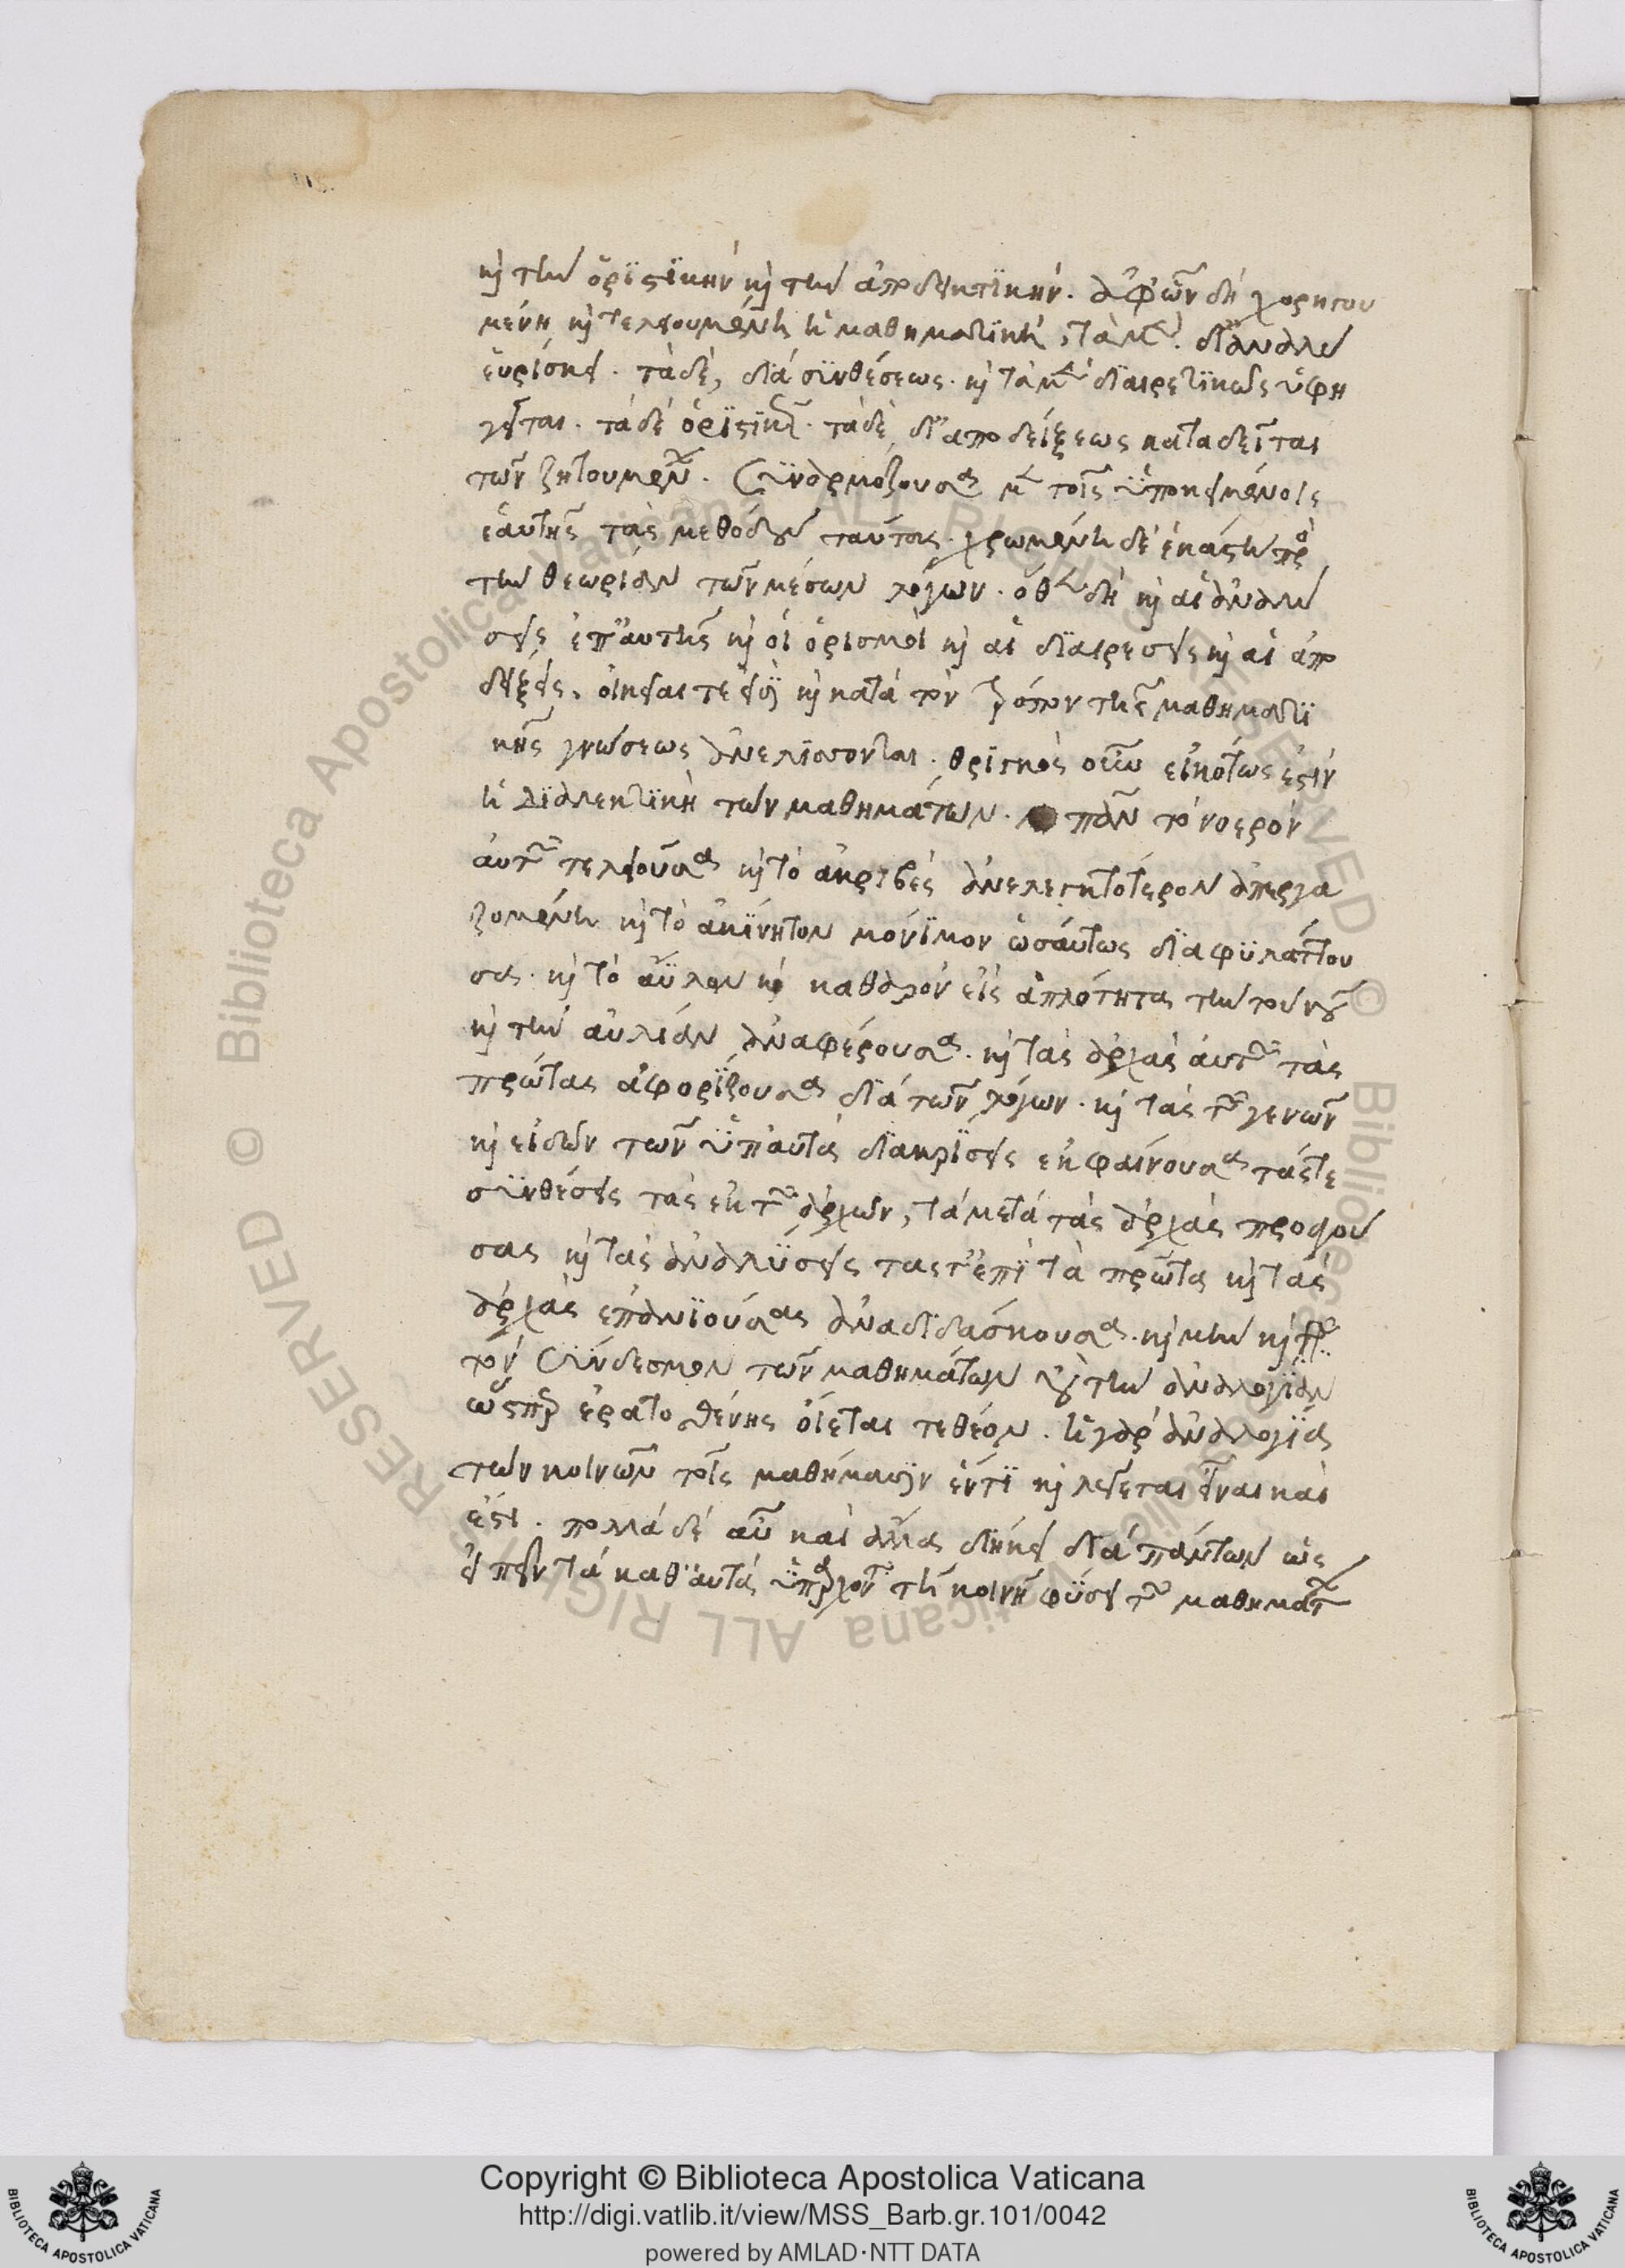 καὶ τὴν ὁριστικὴν καὶ τὴν ἀποδεικτικήν. ἀφ' ὧν δὴ χορηγου
μένη καὶ τελειουμένη ἡ μαθηματικὴ, τὰ μὲν δι' ἀναλύ
εὑρίσκει. τὰ δὲ, διὰ συνθέσεως. καὶ τὰ μὲν διαιρετικῶς ὑφη
γεῖται. τὰ δὲ ὁριστικῶς. τὰ δὲ δι' ἀποδείξεως καταδεῖται
τῶν ζητουμένων. συναρμόζουσα μὲν τοῖς ὑποκειμένοις
ἑαυτῆς τὰς μεθόδους ταύτας. χρωμένη δὲ ἑκάστη πρὸς
τὴν θεωρίαν τῶν μέσων λόγων. ὅθεν δὴ καὶ αἱ ἀναλύ
σεις ἐπ' αὐτῆς καὶ οἱ ὁρισμοὶ καὶ αἱ διαιρέσεις καὶ αἱ ἀπο
δείξεις, οἰκεῖαι τέ εἰσι καὶ κατὰ τὸν τρόπον τῆς μαθηματι
κῆς γνώσεως ἀνελίσσονται. θριγκὸς οὖν εἰκότως ἐστὶν
ἡ διαλεκτικὴ τῶν μαθημάτων. πᾶν τὸ νοερὸν
αὐτῶν τελειοῦσα καὶ τὸ ἀκριβὲς ἀνελεγκτότερον ἀπεργα
ζομένη καὶ τὸ ἀκίνητον μόνιμον ὡσαύτως διαφυλάττου
σα. καὶ τὸ ἄϋλον καὶ καθαρὸν εἰς ἁπλότητα τὴν τοῦ νοῦ
καὶ τὴν ἀυλίαν ἀναφέρουσα. καὶ τὰς ἀρχὰς αὐτῶν τὰς
πρώτας ἀφορίζουσα διὰ τῶν λόγων. καὶ τὰς τῶν γενῶν
καὶ εἰδῶν τῶν ὑπ' αὐτὰ διακρίσεις ἐκφαίνουσα τάς τε
συνθέσεις τὰς ἐκ τῶν ἀρχῶν, τὰ μετὰ τὰς ἀρχὰς προαγού
σας καὶ τὰς ἀναλύσεις τὰς ἐπὶ τὰ πρῶτα καὶ τὰς
ἀρχὰς ἐπανιούσας ἀναδιδάσκουσα. καὶ μὴν καὶ
τὸν σύνδεσμον τῶν μαθημάτων οὐ τὴν ἀναλογίαν
ὥσπερ ἐρατοσθένης οἴεται τεθέον. ἡ γὰρ ἀναλογία
τῶν κοινῶν τοῖς μαθήμασιν ἐντὶ καὶ λέγεται εἶναι καὶ
ἐστι. πολλὰ δὲ αὖ καὶ ἄλλα διήκει διὰ πάντων ὡς
εἰπεῖν τὰ καθ' αὑτὰ ὑπάρχοντα τῇ κοινῇ φύσει τῶν μαθημάτων
Copyright © Biblioteca Apostolica Vaticana
http://digi.vatlib.it/view/MSS_Barb.gr.101/0042
powered by AMLAD·NTT DATA